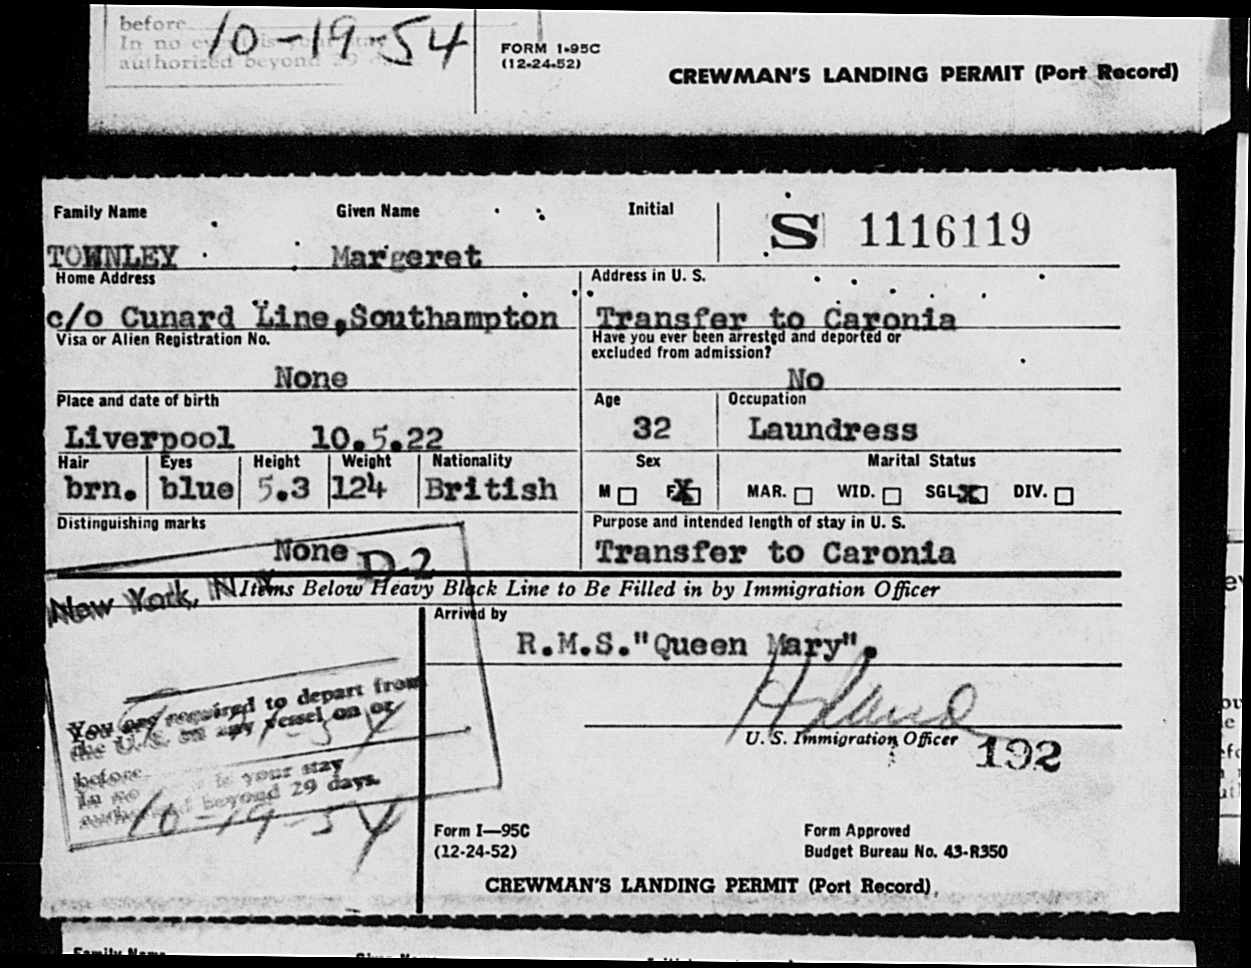 before
In no event is your stay
authorized beyond 29 days.
10-19-54
FORM I-95C
(12-24-52)
CREWMAN'S LANDING PERMIT (Port Record)
Family Name Given Name Initial S 1116119
TOWNLEY Margeret
Home Address Address in U. S.
c/o Cunard Line, Southampton Transfer to Caronia
Visa or Alien Registration No. Have you ever been arrested and deported or
excluded from admission?
None No
Place and date of birth Age Occupation
Liverpool 10.5.22 32 Laundress
Hair Eyes Height Weight Nationality Sex Marital Status
brn. blue 5.3 124 British M F X MAR. WID. SGL. X DIV.
Distinguishing marks Purpose and intended length of stay in U. S.
None D-2 Transfer to Caronia
New York, N.Y. Items Below Heavy Black Line to Be Filled in by Immigration Officer
Arrived by
R.M.S."Queen Mary".
You are required to depart from
the U. S. on any vessel on or
before
In no is your stay
authorized beyond 29 days.
10-19-54
U. S. Immigration Officer 192
Form I—95C Form Approved
(12-24-52) Budget Bureau No. 43-R350
CREWMAN'S LANDING PERMIT (Port Record)
Family Name